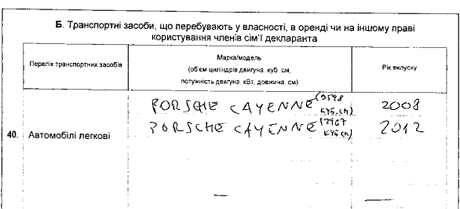 Б. Транспортні засоби, що перебувають у власності, в оренді чи на іншому праві
користування членів сім'ї декларанта
Перелік транспортних засобів
Марка/модель
(об'єм циліндрів двигуна, куб. см,
потужність двигуна, кВт, довжина, см)
Рік випуску
40. Автомобілі легкові
PORSCHE CAYENNE куб.см) 2008
PORSCHE CAYENNE (2967 куб.см) 2012